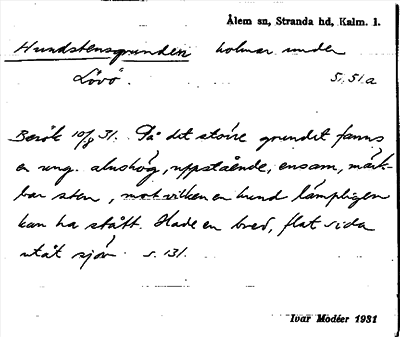 Ålem sn, Stranda hd, Kalm. l.
Hundstensgrunden holmar under
Lövö. s. 51a
Besök 10/8 31. På det större grundet fanns
en ung. alnshög, uppstående, ensam, märk-
bar sten, mot vilken en hund lämpligen
kan ha stått. Hade en bred, flat sida
utåt sjön. s. 131.
Ivar Modéer 1931